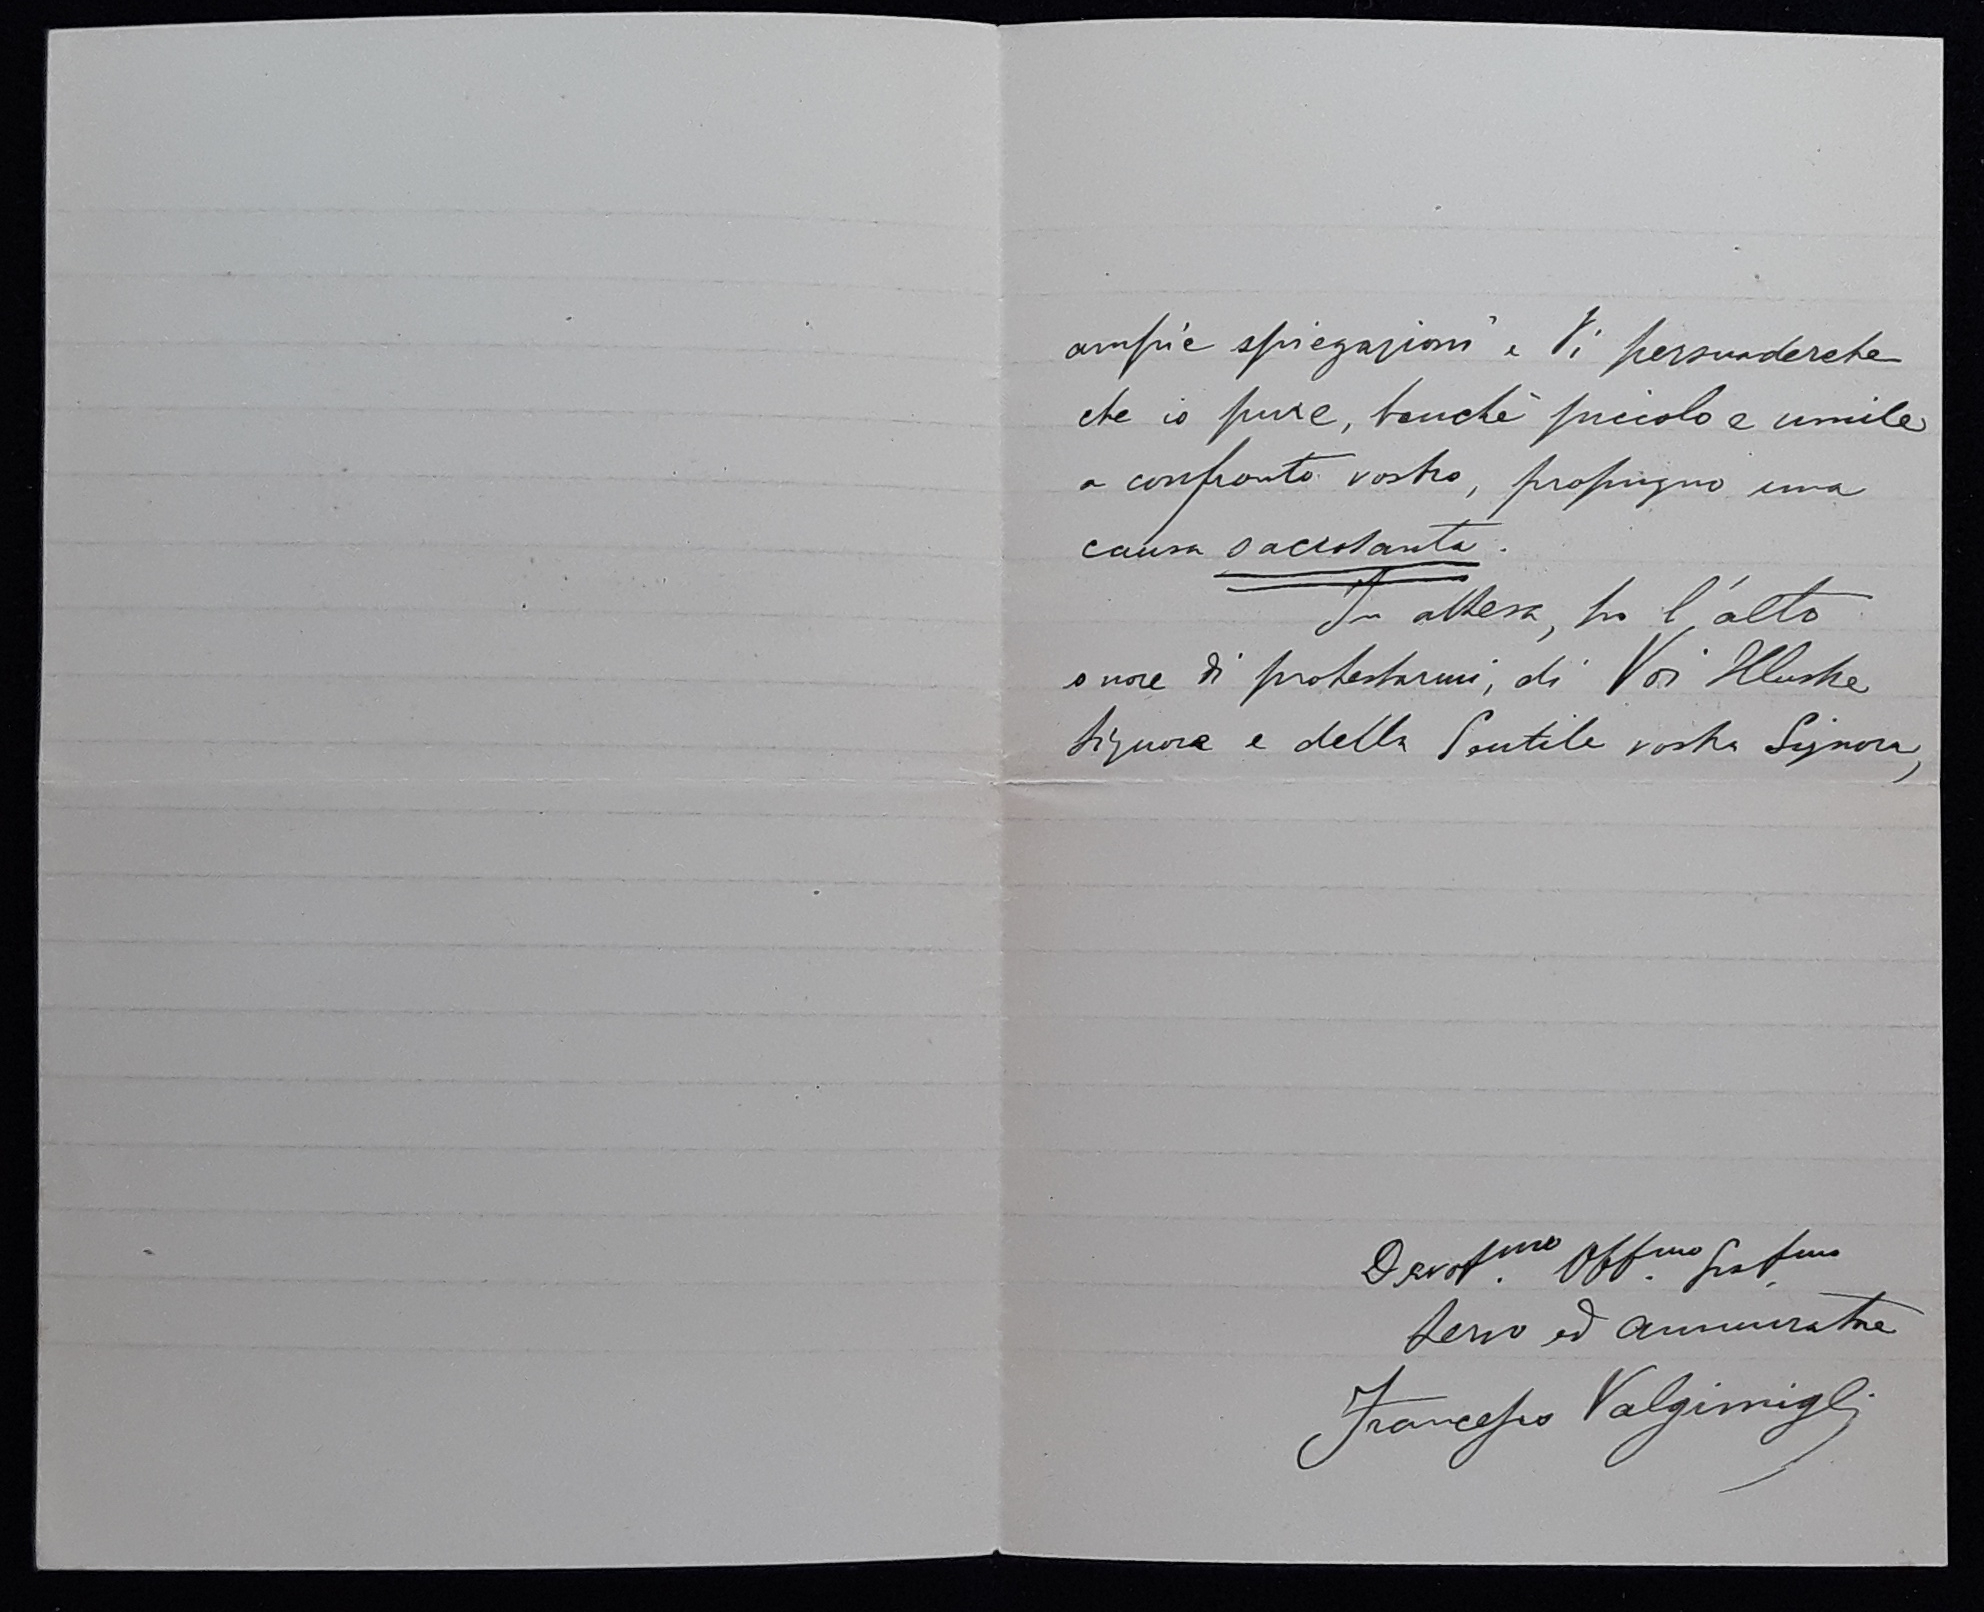 ampie spiegazioni e Vi persuaderete
che io pure, benchè piccolo e umile
a confronto vostro, propugno una
causa sacrosanta.
In attesa, ho l'alto
onore di protestarmi, di Voi Illustre
Signore e della Gentile vostra Signora,
Devot.mo Obb.mo
servo ed ammiratore
Francesco Valgimigli